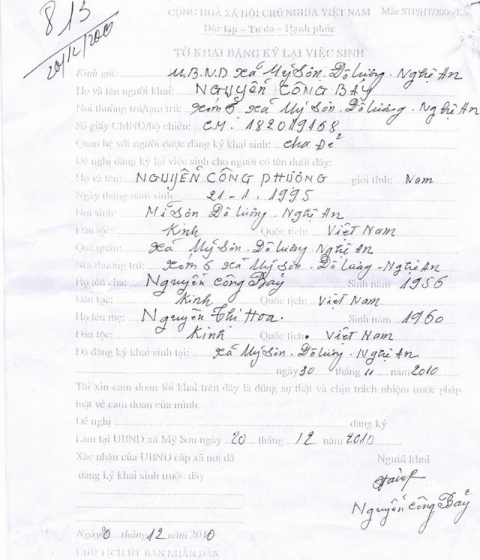 813
20/12/2010
CỘNG HOÀ XÃ HỘI CHỦ NGHĨA VIỆT NAM Mẫu STP/HT/2006
Độc lập - Tự do - Hạnh phúc
TỜ KHAI ĐĂNG KÝ LẠI VIỆC SINH
Kính gửi: U.B.N.D xã Mỹ Sơn. Đô lương. Nghệ An
Họ và tên người khai: NGUYỄN CÔNG BẢY
Nơi thường trú/tạm trú: Xóm 5 xã Mỹ Sơn. Đô lương. Nghệ An
Số giấy CMND/hộ chiếu: CM. 182019168
Quan hệ với người được đăng ký khai sinh: cha Đẻ
Đề nghị đăng ký lại việc sinh cho người có tên dưới đây:
Họ và tên: NGUYỄN CÔNG PHƯỢNG giới tính: Nam
Ngày tháng năm sinh 21-1.1995
Nơi sinh Mĩ Sơn Đô lương. Nghệ An
Dân tộc: Kinh Quốc tịch: Việt Nam
Quê quán: xã Mỹ Sơn. Đô lương Nghệ An
Nơi thường trú: Xóm 5 xã Mỹ Sơn. Đô lương - Nghệ An
Họ tên cha: Nguyễn Công Bảy Sinh năm 1956
Dân tộc: Kinh Quốc tịch: Việt Nam
Họ tên mẹ: Nguyễn Thị Hoa. Sinh năm 1960
Dân tộc: Kinh Quốc tịch: Việt Nam
Đã đăng ký khai sinh tại: xã Mỹ Sơn. Đô lương. Nghệ An
ngày 30 tháng 11 năm 2010
Tôi xin cam đoan lời khai trên đây là đúng sự thật và chịu trách nhiệm trước pháp
luật về cam đoan của mình.
Đề nghị đăng ký
Làm tại UBND xã Mỹ Sơn ngày 20 tháng 12 năm 2010
Xác nhận của UBND cấp xã nơi đã Người khai
đăng ký khai sinh trước đây
Nguyễn Công Bảy
Ngày 20 tháng 12 năm 2010
CHỦ TỊCH UỶ BAN NHÂN DÂN